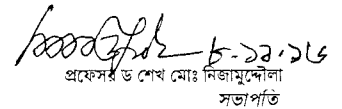 ৮.১১.১৬
প্রফেসর ড শেখ মোঃ নিজামুদ্দৌলা
সভাপতি